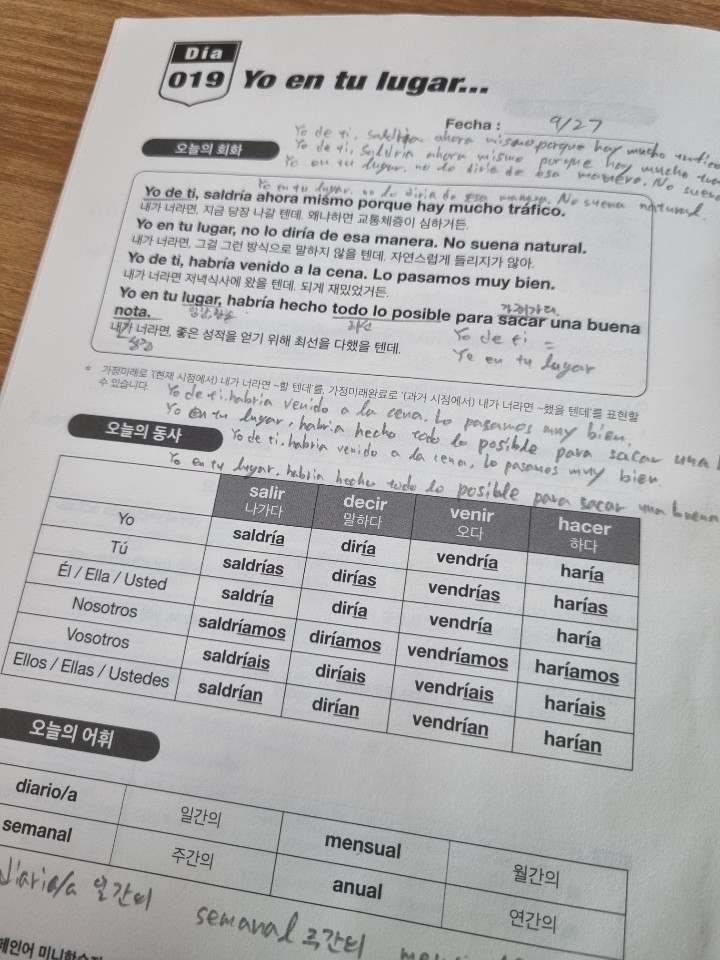 Día
019 Yo en tu lugar...
Fecha : 9/27
Yo de ti, saldría ahora mismo porque hay mucho tráfico
오늘의 회화
Yo de ti, saldría ahora mismo porque hay mucho
Yo en tu lugar, no lo diría de esa manera. No suena
Yo en tu lugar, no lo diría de esa manera. No suena natural.
Yo de ti, saldría ahora mismo porque hay mucho tráfico.
내가 너라면, 지금 당장 나갈 텐데. 왜냐하면 교통체증이 심하거든.
Yo en tu lugar, no lo diría de esa manera. No suena natural.
내가 너라면, 그걸 그런 방식으로 말하지 않을 텐데. 자연스럽게 들리지가 않아.
Yo de ti, habría venido a la cena. Lo pasamos muy bien.
내가 너라면 저녁식사에 왔을 텐데. 되게 재밌었거든.
Yo en tu lugar, habría hecho todo lo posible para sacar una buena
nota.
최선
내가 너라면, 좋은 성적을 얻기 위해 최선을 다했을 텐데.
성적
Yo de ti =
Yo en tu lugar
* 가정미래로 '(현재 시점에서) 내가 너라면 ~할 텐데'를, 가정미래완료로 '(과거 시점에서) 내가 너라면 ~했을 텐데'를 표현할
수 있습니다.
Yo de ti, habría venido a la cena. Lo pasamos muy bien.
Yo en tu lugar, habría hecho todo lo posible para sacar una
오늘의 동사
Yo de ti, habría venido a la cena, lo pasamos muy bien.
Yo en tu lugar, habría hecho todo lo posible para sacar una buena
salir decir venir hacer
나가다 말하다 오다 하다
Yo saldría diría vendría haría
Tú saldrías dirías vendrías harías
Él / Ella / Usted saldría diría vendría haría
Nosotros saldríamos diríamos vendríamos haríamos
Vosotros saldríais diríais vendríais haríais
Ellos / Ellas / Ustedes saldrían dirían vendrían harían
오늘의 어휘
diario/a 일간의 mensual 월간의
semanal 주간의 anual 연간의
diario/a 일간의 semanal 주간의